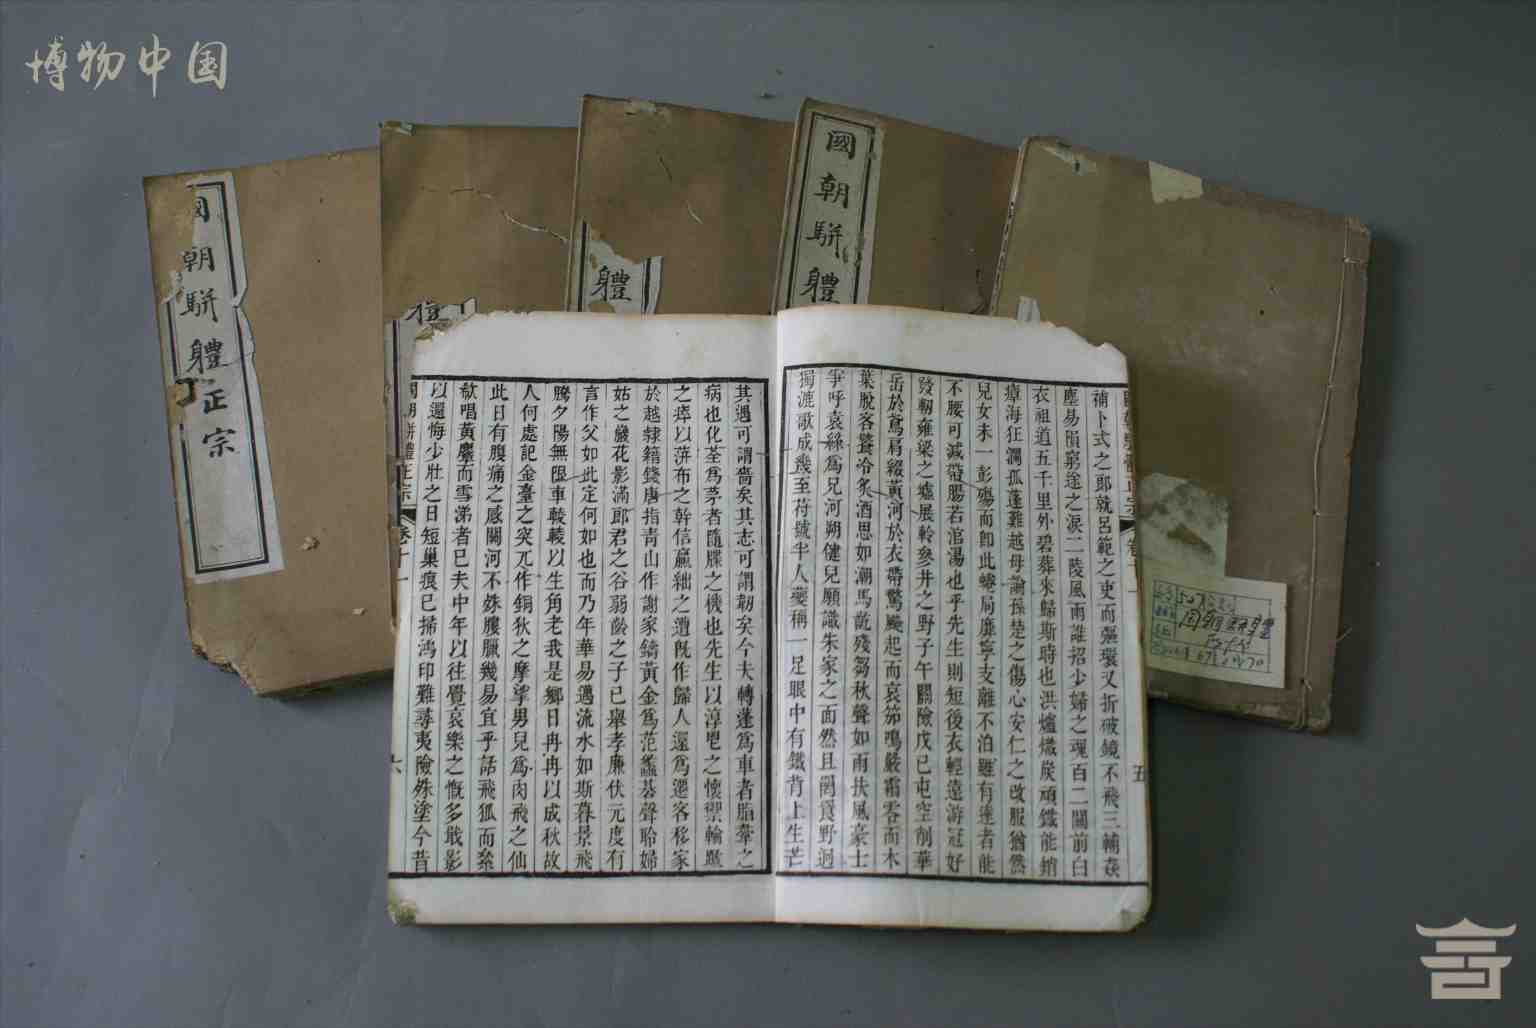 博物中国
國朝駢體正宗
體
國朝駢體
補卜式之郎就呂範之吏而彊瓌又折破鏡不飛三輔
塵易隕窮途之淚二陵風雨誰招少婦之魂百二關前白
衣祖道五千里外碧葬來歸斯時也洪爐熾炭頑鐵能銷
瘴海狂瀾孤蓬難越母謝孫楚之傷心安仁之改服猶然
兒女未一彭殤而即此蜷局靡寧支離不泊雖有達者能
不腰可減帶腸若涫湯也乎先生則短後衣輕遠游冠好
發軔雍梁之墟展軨參井之野子午關險戊己屯空削華
岳於鳶肩綴黃河於衣帶驚飈起而哀笳鳴嚴霜零而木
葉脫客饕冷炙酒思如潮馬齕殘芻秋聲如雨扶風豪士
爭呼袁絲為兄河朔健兒願識朱家之面然且閉置野
獨漉歌成幾至苻號半人虁稱一足眼中有鐵背上生芒
五
其遇可謂嗇矣其志可謂韌矣今夫轉蓬為車者脂舝之
病也化荃為茅者隨牒之機也先生以淳
之瘁以洴布之幹信羸絀之遭既作歸人還為遷客移家
於越隸籍錢唐指青山作謝家鑄黃金為范蠡碁聲聆婦
姑之嚴花影滿郎君之谷弱齡之子已舉孝廉伏元度有
言作父如此定何如也而乃年華易邁流水如斯暮景飛
騰夕陽無限車輘輘以生角老我是鄉日冉冉以成秋故
人何處記金臺之突兀作銅狄之摩挲男兒為肉飛之仙
此日有腹痛之感關河不殊膢臘幾易宜乎話飛狐而
欷唱黃麞而雪涕者已夫中年以往覺哀樂之慨多戢影
以還悔少壯之日短巢痕已掃鴻印難尋夷險殊塗今昔
卷十一
六
507